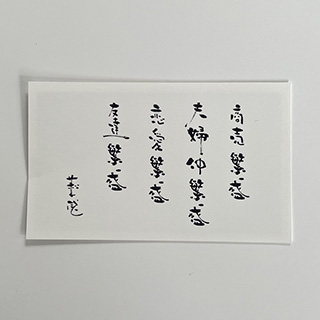 商売繁盛
夫婦仲繁盛
恋愛繁盛
友達繁盛